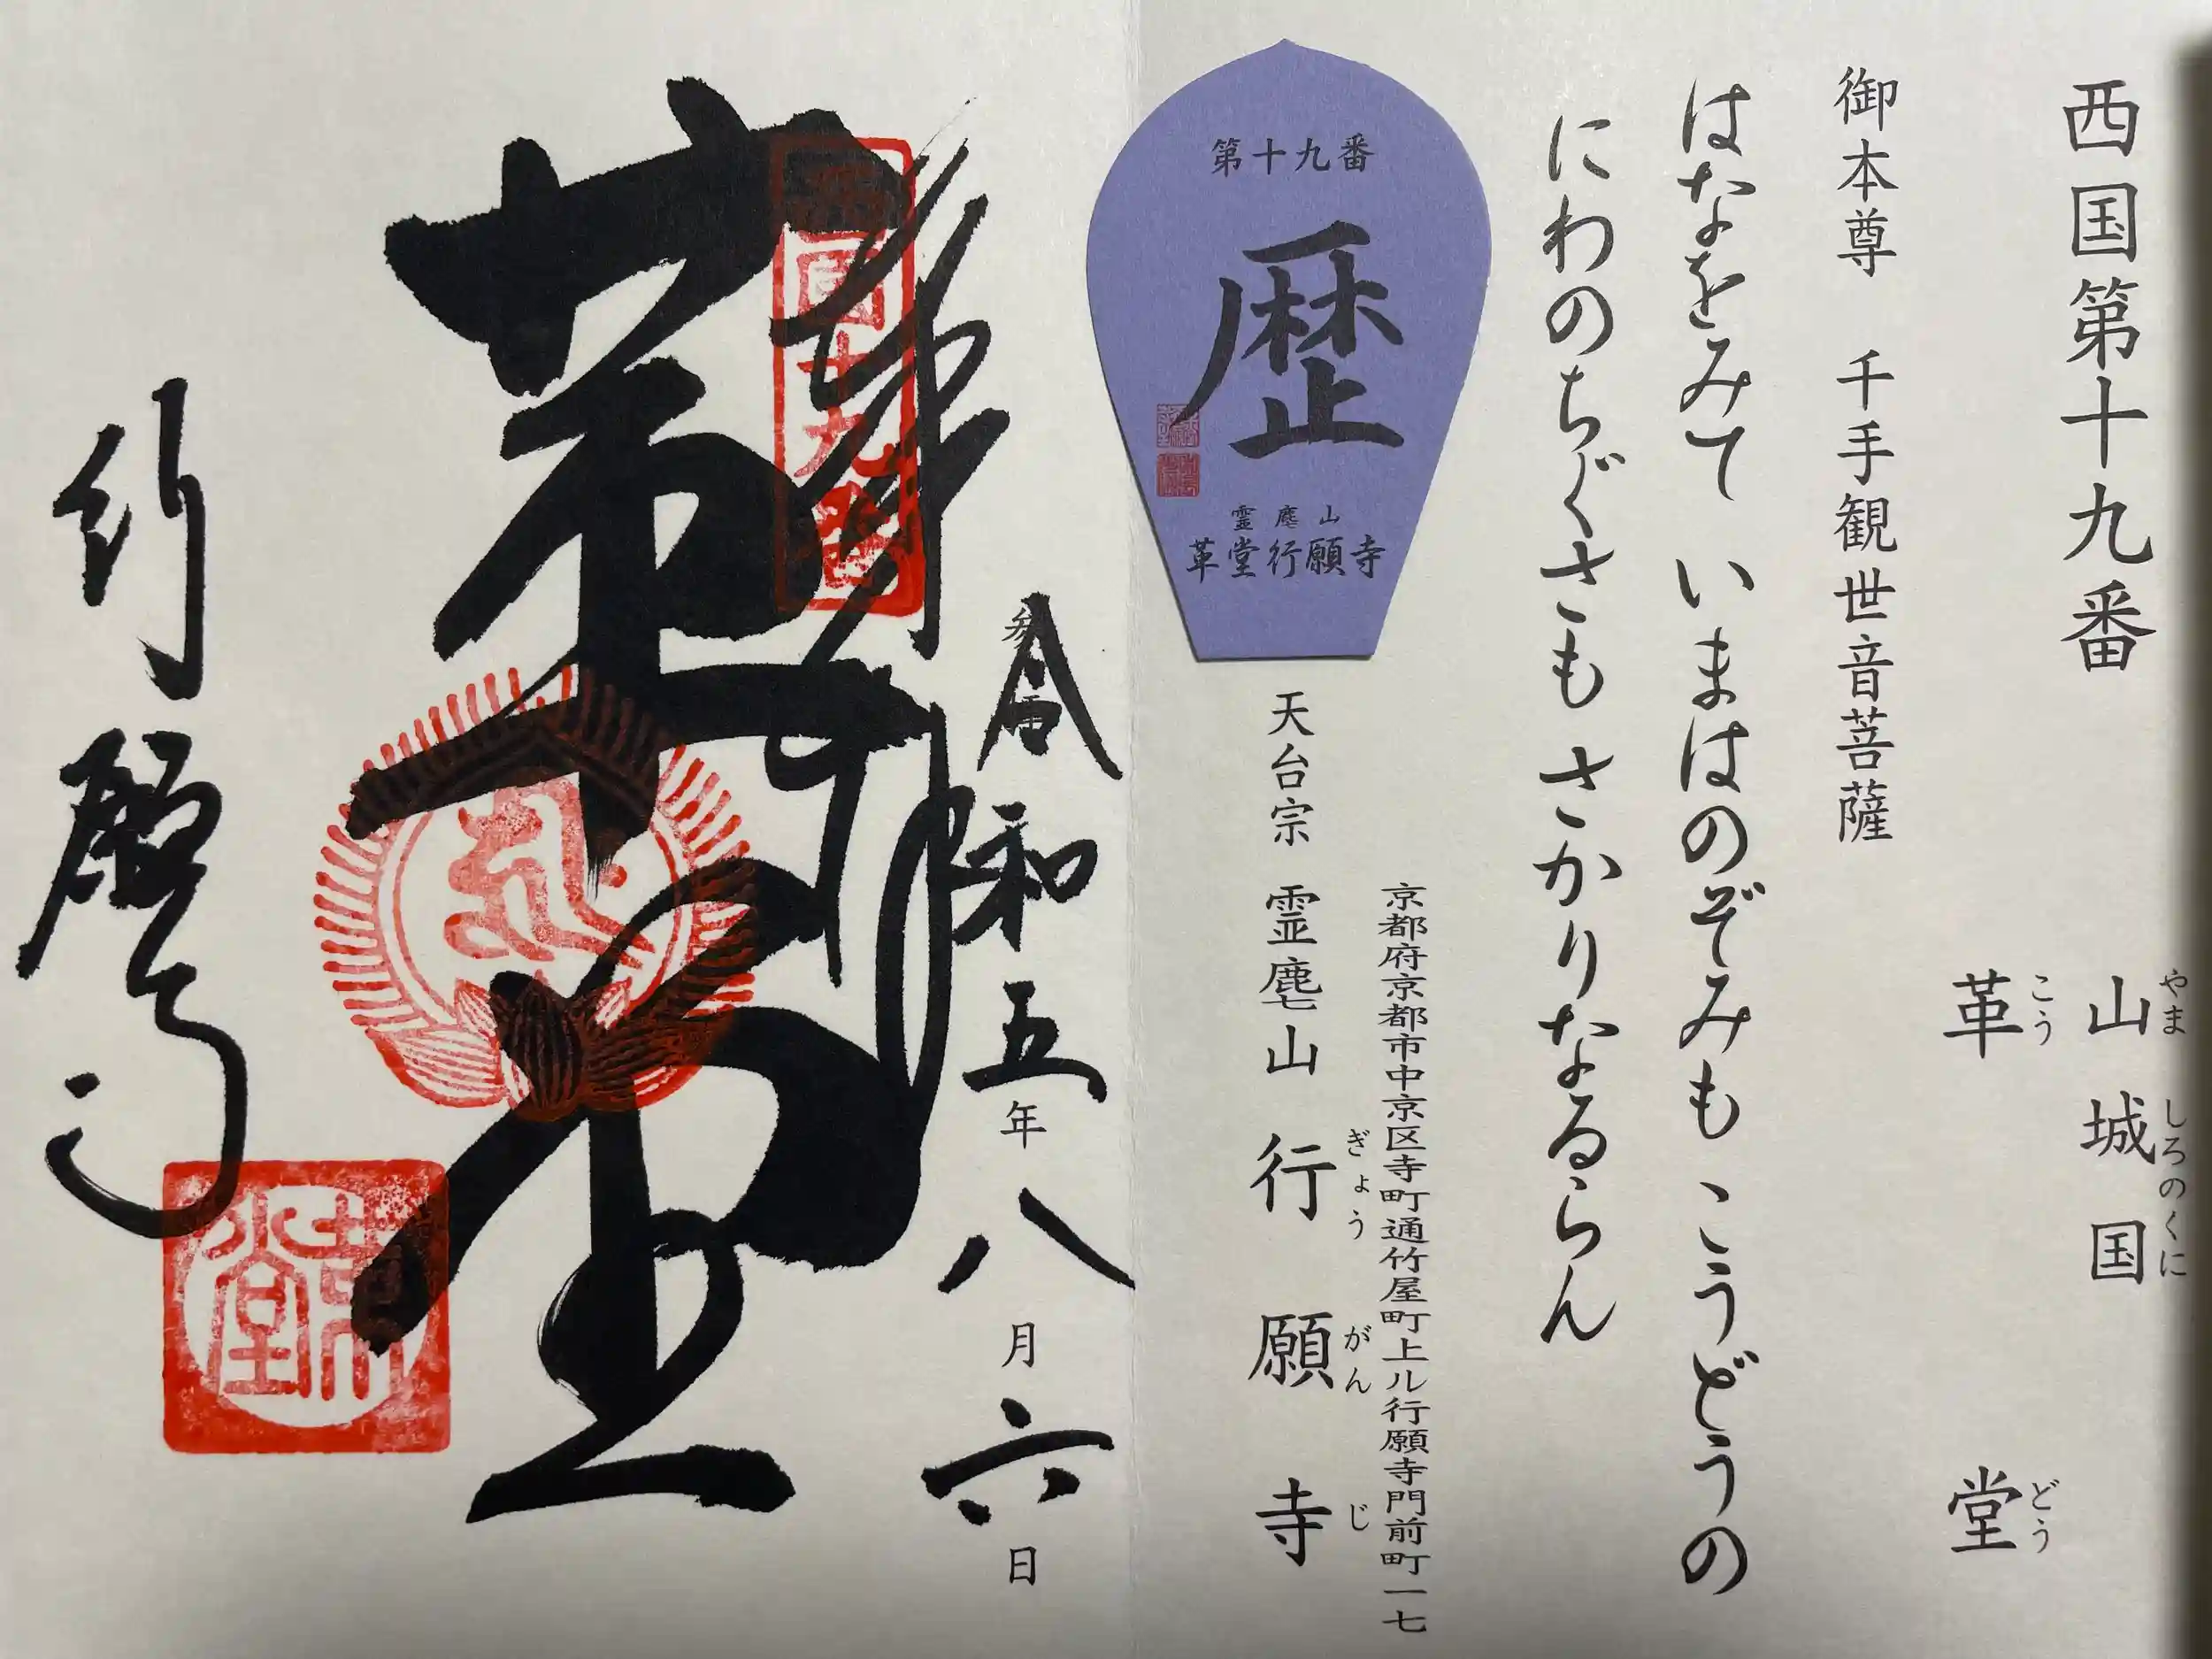 西国第十九番
山城国
やましろのくに
革堂
こうどう
御本尊 千手観世音菩薩
はなをみて いまはのぞみも こうどうの
にわのちぐさも さかりなるらん
京都府京都市中京区寺町通竹屋町上ル行願寺門前町一七
天台宗 霊麀山 行願寺
ぎょうがんじ
第十九番
歴
霊麀山
革堂行願寺
令和五年八月六日
奉拝
西國十九番
革堂
行願寺
革堂